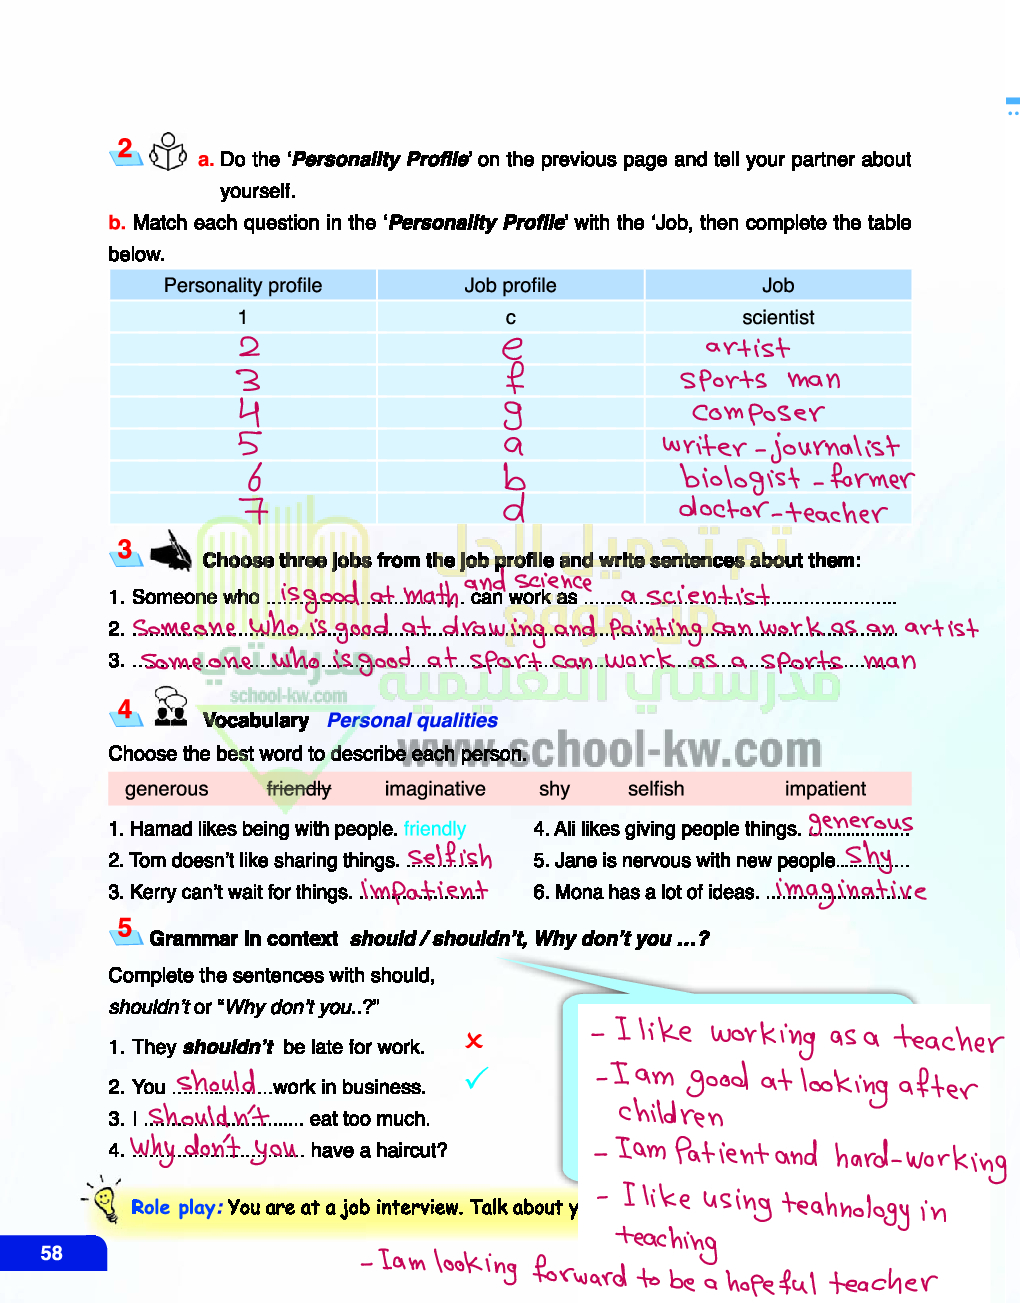 2 a. Do the ‘Personality Profile’ on the previous page and tell your partner about
yourself.
b. Match each question in the ‘Personality Profile’ with the ‘Job, then complete the table
below.
Personality profile Job profile Job
1 c scientist
2 e artist
3 f sports man
4 g composer
5 a writer - journalist
6 b biologist - farmer
7 d doctor - teacher
تم تحميل الحل
3 Choose three jobs from the job profile and write sentences about them:
1. Someone who is good at math and science can work as a scientist
من موقع
2. Someone who is good at drawing and painting can work as an artist
3. Some one who is good at sport can work as a sports man
مدرستي
school-kw.com
مدرستي التعليمية
4 Vocabulary Personal qualities
www.school-kw.com
Choose the best word to describe each person.
generous friendly imaginative shy selfish impatient
1. Hamad likes being with people. friendly
2. Tom doesn’t like sharing things. Selfish
3. Kerry can’t wait for things. impatient
4. Ali likes giving people things. generous
5. Jane is nervous with new people. Shy
6. Mona has a lot of ideas. imaginative
5 Grammar in context should / shouldn’t, Why don’t you ...?
Complete the sentences with should,
shouldn’t or “Why don’t you..?”
1. They shouldn’t be late for work. ✗
2. You should work in business. ✓
3. I Shouldn't eat too much.
4. Why don't you have a haircut?
- I like working as a teacher
- I am good at looking after
children
- Iam Patient and hard-working
- I like using teahnology in
teaching
Role play: You are at a job interview. Talk about y
- Iam looking forward to be a hopeful teacher
58